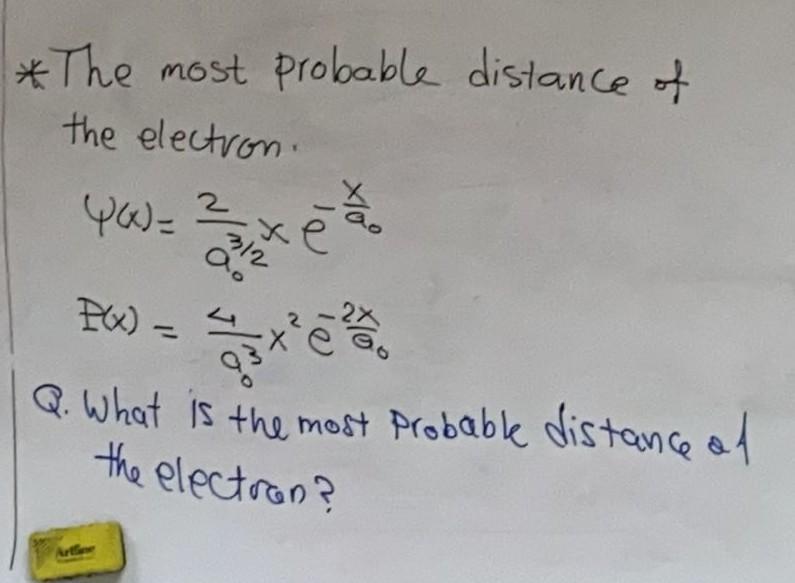 * The most probable distance of
the electron.
ψ(x) = 2/a₀^(3/2) x e^(-x/a₀)
P(x) = 4/a₀³ x² e^(-2x/a₀)
Q. What is the most Probable distance of
the electron?
Artline